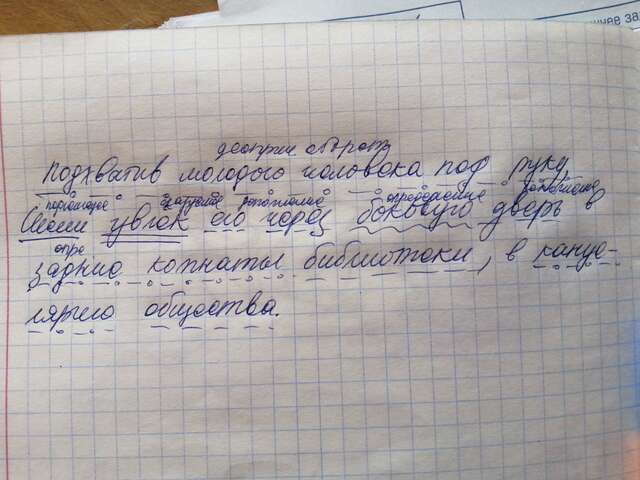 нее за
дееприч оборот
Подхватив молодого человека под руку
подлежащее сказуемое дополнение определение дополнение
увлек его через боковую дверь в
опре
задние комнаты библиотеки, в канце-
лярию общества.